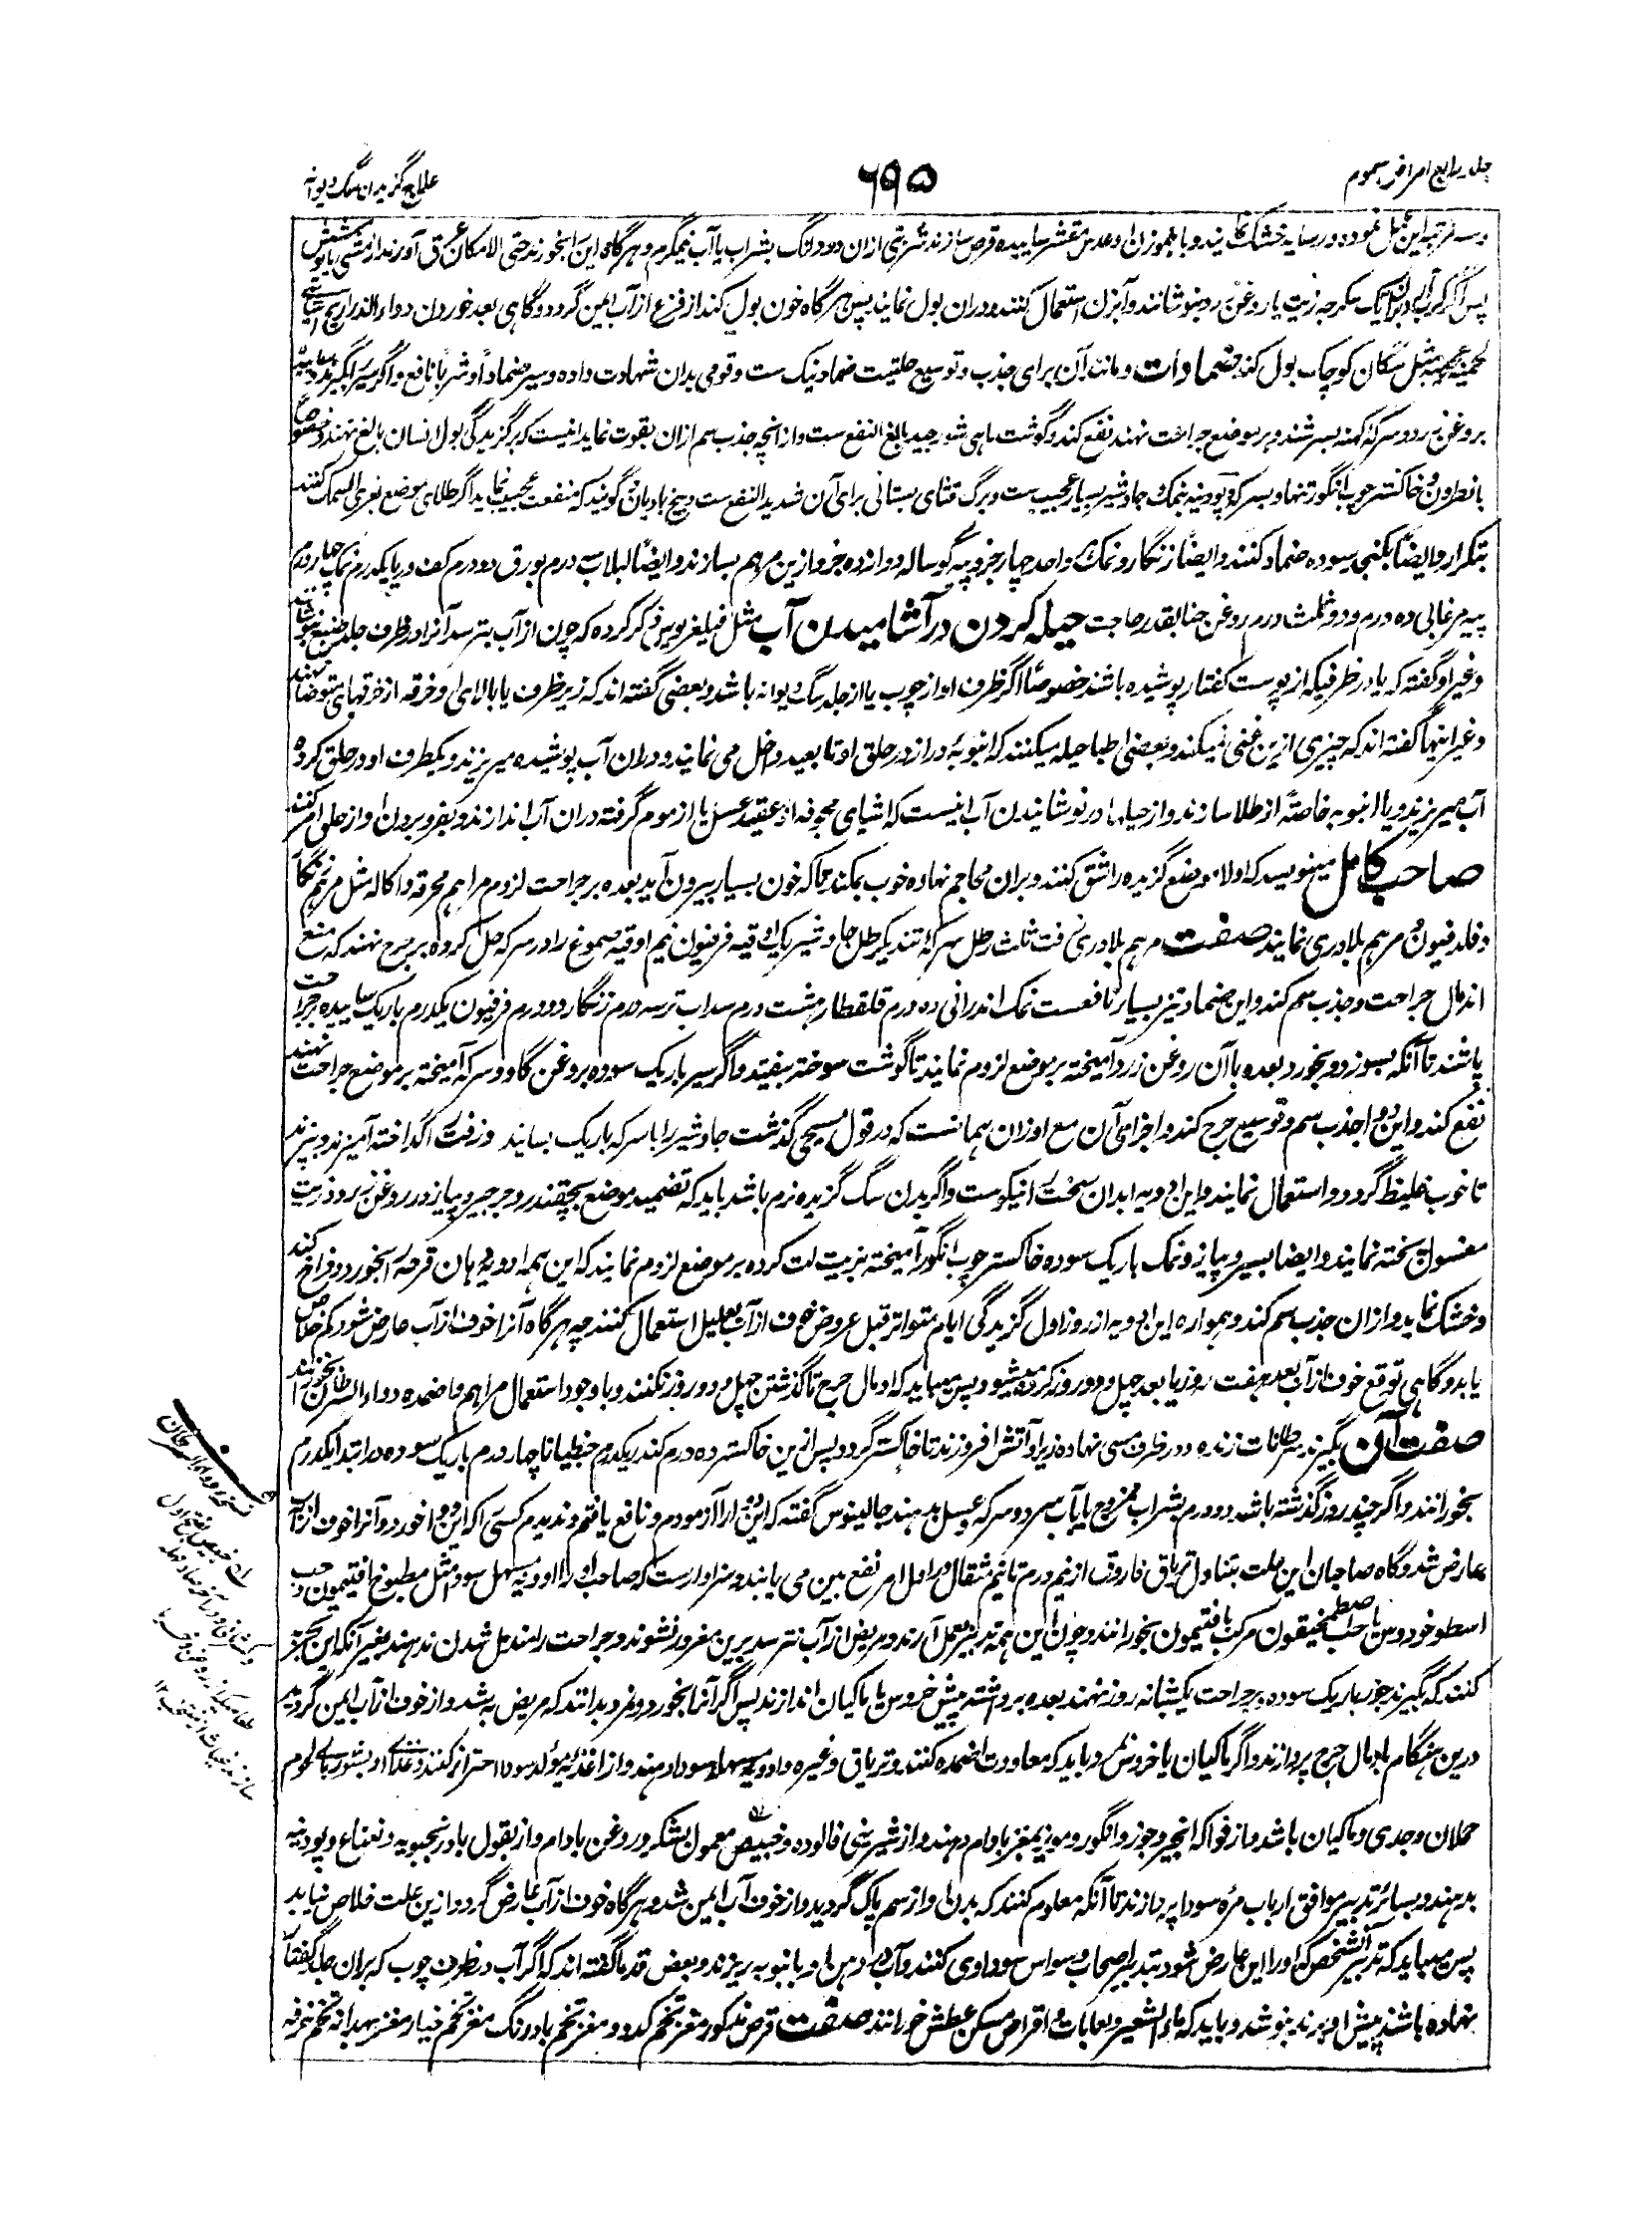 جلد رابع امراض سموم
۶۹۵
علاج گزیدن سگ دیوانه
و سه مرتبه این عمل نموده در سایه خشک نمایند و با هموزن او عدس مقشر ساییده قرص سازند شربتی ازان دو دانگ بشراب یا آب نیمگرم و هرگاه این را بخورند حتی الامکان عرق آورند از مشی یا پوشش
پس اگر کرب آرد بر آن یک سکرجه زیت یا روغن زرد بنوشانند و آبزن استعمال کنند و دران بول نمایند پس هرگاه خون بول کند از فزع از آب ایمن گردد و گاهی بعد خوردن دواء الذراریح اشیای
لحمیه عجیبه مثل سگان کوچک بول کند ضمادات و مانند آن برای جذب و توسیع حلتیت ضماد نیک ست و قومی بدان شهادت داده و سیر ضماداً و شرباً نافع و اگر سیر را بگیرند و
بروغن زرد و سرکه کهنه بسرشند و بر موضع جراحت نهند نفع کند و گوشت ماهی شور جید بالغ النفع ست و از آنچه جذب سم ازان بقوت نماید اینست که بر گزیدگی بول انسان بالغ نهند و خصوصاً
با نطرون و خاکستر چوب انگور تنها و بسرکه و پودینه بنمک جاوشیر بسیار عجیب ست و برگ قثای بستانی برای آن شدید النفع ست و بیخ بادیان گویند که منفعت عجیب نماید اگر طلای موضع بغری السمک کنند
بتکرار و ایضاً بکنجی سوده ضماد کنند و ایضاً زنگار و نمک واحد چار جزو پیه گوساله دوازده جزو ازین مرهم بسازند و ایضاً لبلاب سه درم بورق دو درم کف دریا یکدرم نمک چار درم
پیه مرغابی ده درم و دو ثلث درم روغن حنا بقدر حاجت حیله کردن در آشامیدن آب مثل فیلغریوس ذکر کرده که چون از آب بترسد آنرا در ظرف جلد ضبع بنوشانند
و غیر او گفته که یا در ظرفیکه از پوست کفتار پوشیده باشند خصوصاً اگر ظرف او از چوب یا از جلد سگ دیوانه باشد و بعضی گفته اند که زیر ظرف یا بالای او خرقه از خرقهای متوضا نهند
و غیر اینها گفته اند که چیزی ازین غنی نمیکند و بعضی اطبا حیله میکنند که انبوبۀ دراز در حلق او تا بعید داخل می نمایند و دران آب پوشیده میریزند و یکطرف او در حلق کرده
آب میریزند و یا انبوبه خاصةً از طلا سازند و از حیلها در نوشانیدن آب اینست که اشیای مجوفه از عقید عسل یا از موم گرفته دران آب اندازند و بفرو بردن او از حلق امر کنند
صاحب کامل مینویسد که اولا موضع گزیده را شق کنند و بران محاجم نهاده خوب بمکند تا که خون بسیار بیرون آید بعده بر جراحت لزوم مراهم محرقه و اکاله مثل مرهم زنگار
و فلدفیون و مرهم بلادری نمایند صفت مرهم بلادری زفت ثلث رطل سرکۀ تند یکرطل جاوشیر یک اوقیه فرفیون نیم اوقیه صموغ را در سرکه حل کرده بر جرح نهند که منع
اندمال جراحت و جذب سم کند و این ضماد نیز بسیار نافعست نمک اندرانی ده درم قلقطار هشت درم سداب تر سه درم زنگار دو درم فرفیون یکدرم باریک ساییده بر جراحت
پاشند تا آنکه بسوزد و بخورد بعده با آن روغن زرد آمیخته بر موضع لزوم نمایند تا گوشت سوخته بیفتد و اگر سیر باریک سوده بروغن گاو و سرکه آمیخته بر موضع جراحت نهند
نفع کند و این دوا جذب سم و توسیع جرح کند و اجزای آن مع اوزان همانست که در قول مسیحی گذشت جاوشیر را با سرکه باریک بسایند و زفت را گداخته آمیزند و بپزند
تا خوب غلیظ گردد و استعمال نمایند و این ادویه ابدان سخت را نیکوست و اگر بدن سگ گزیده نرم باشد باید که تضمید موضع بچقندر و جرجیر و پیاز در روغن زرد و زیت
مغسول پخته نمایند و ایضا بسیر و پیاز و نمک باریک سوده خاکستر چوب انگور آمیخته بزیت لت کرده بر موضع لزوم نمایند که این همه ادویه دهان قرحه را بخورد و فراخ کند
و خشک نماید و ازان جذب سم کند و همواره این ادویه از روز اول گزیدگی ایام متواتر قبل عروض خوف از آب بعلیل استعمال کنند چه هرگاه آنرا خوف از آب عارض شود کم خلاص
یابد و گاهی توقع خوف از آب بعد هفت روز یا بعد چهل و دو روز کرده میشود پس میباید که اندمال جرح تا گذشتن چهل و دو روز نکنند و با وجود استعمال مراهم و اضمده دواء السرطان بخورانند
صفت آن بگیرند سرطانات زنده و در ظرف مسی نهاده زیر او آتش افروزند تا خاکستر گردد پس ازین خاکستر ده درم کندر یکدرم جنطیانا چهار درم باریک سوده در ابتدا یکدرم
بخورانند و اگر چند روز گذشته باشد دو درم بشراب ممزوج یا بآب سرد و سرکه و عسل بدهند جالینوس گفته که این دوا را آزمودم و نافع یافتم و ندیدم کسی را که این دوا خورد و آنرا خوف از آب
عارض شد و گاه صاحبان این علت بتناول تریاق فاروق از نیم درم تا نیم مثقال در اول امر نفع بین می یابند و سزاوارست که صاحب او را ادویه مسهل سودا مثل مطبوخ افتیمون و حب
اسطوخودوس یا حب اصطمخیقون مرکب بافتیمون بخورانند و چون این همه تدابیر بعمل آرند و مریض از آب نترسد برین مغرور نشوند و جراحت را مندمل شدن ندهند بغیر آنکه این تجربه
کنند که بگیرند جوز باریک سوده بر جراحت یکشبانه روز نهند بعده برداشته پیش خروس یا ماکیان اندازند پس اگر آنرا بخورد و نمرد بدانند که مریض به شد و از خوف از آب ایمن گردید
درین هنگام باندمال جرح پردازند و اگر ماکیان یا خروس بمرد باید که معاودت اضمده کنند و تریاق و غیره و ادویه مسهله سودا دهند و از اغذیه مولد سودا احتراز کنند و غذای او بشوربای لحوم
حملان و جدی و ماکیان باشد و از فواکه انجیر و جوز و انگور و مویز بمغز بادام دهند و از شیرینی فالوده و خبیص معمول بشکر و روغن بادام و از بقول بادرنجبویه و نعناع و پودینه
بدهند و بسائر تدبیر موافق ارباب مرۀ سودا پردازند تا آنکه معلوم کنند که بدن او از سم پاک گردید و از خوف آب ایمن شد و هرگاه خوف از آب عارض گردد ازین علت خلاص نیابد
پس میباید که تدبیر شخصی که او را این عارض شود بتدبیر اصحاب وسواس سوداوی کنند و آب در دهن او بانبوبه ریزند و بعض قدما گفته اند که اگر آب در ظرف چوب که بران جلد کفتار
نهاده باشند پیش او برند بنوشد و باید که ماء الشعیر و لعابات و اقراص مسکن عطش خورانند صفت قرص مذکور مغز تخم کدو و مغز تخم بادرنگ مغز تخم خیار مغز بهدانه تخم خرفه
نسخه دواء السرطان